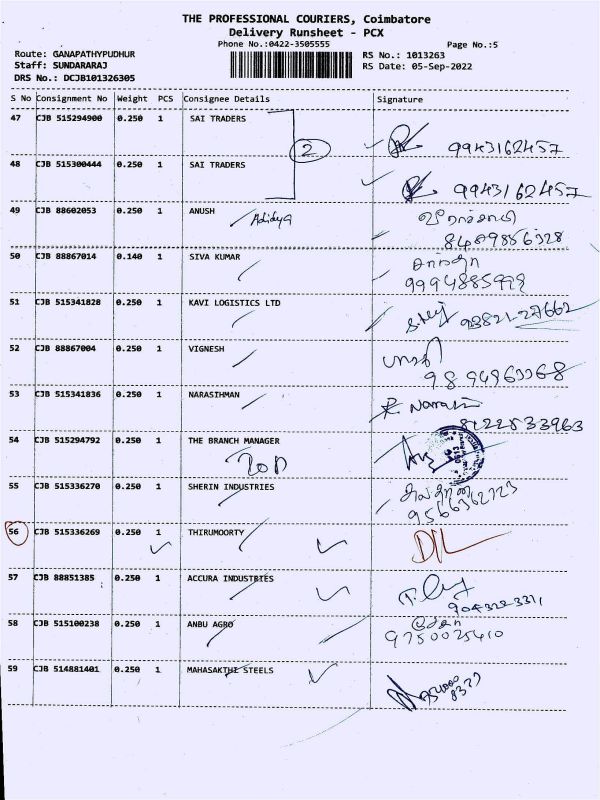 THE PROFESSIONAL COURIERS, Coimbatore
Delivery Runsheet - PCX
Phone No.:0422-3505555
Page No.:5
Route: GANAPATHYPUDHUR
RS No.: 1013263
Staff: SUNDARARAJ
RS Date: 05-Sep-2022
DRS No.: DCJB101326305
S No Consignment No Weight PCS Consignee Details Signature
47 CJB 515294900 0.250 1 SAI TRADERS
2
9943162457
48 CJB 515300444 0.250 1 SAI TRADERS
9943162457
49 CJB 88602053 0.250 1 ANUSH
Adidya
8489856328
50 CJB 88867014 0.140 1 SIVA KUMAR
51 CJB 515341828 0.250 1 KAVI LOGISTICS LTD
93821-27662
52 CJB 88867004 0.250 1 VIGNESH
53 CJB 515341836 0.250 1 NARASIHMAN
8122833963
54 CJB 515294792 0.250 1 THE BRANCH MANAGER
55 CJB 515336270 0.250 1 SHERIN INDUSTRIES
9566362723
56 CJB 515336269 0.250 1 THIRUMOORTY
D/L
57 CJB 88851385 0.250 1 ACCURA INDUSTRIES
58 CJB 515100238 0.250 1 ANBU AGRO
9750025410
59 CJB 514881401 0.250 1 MAHASAKTHI STEELS